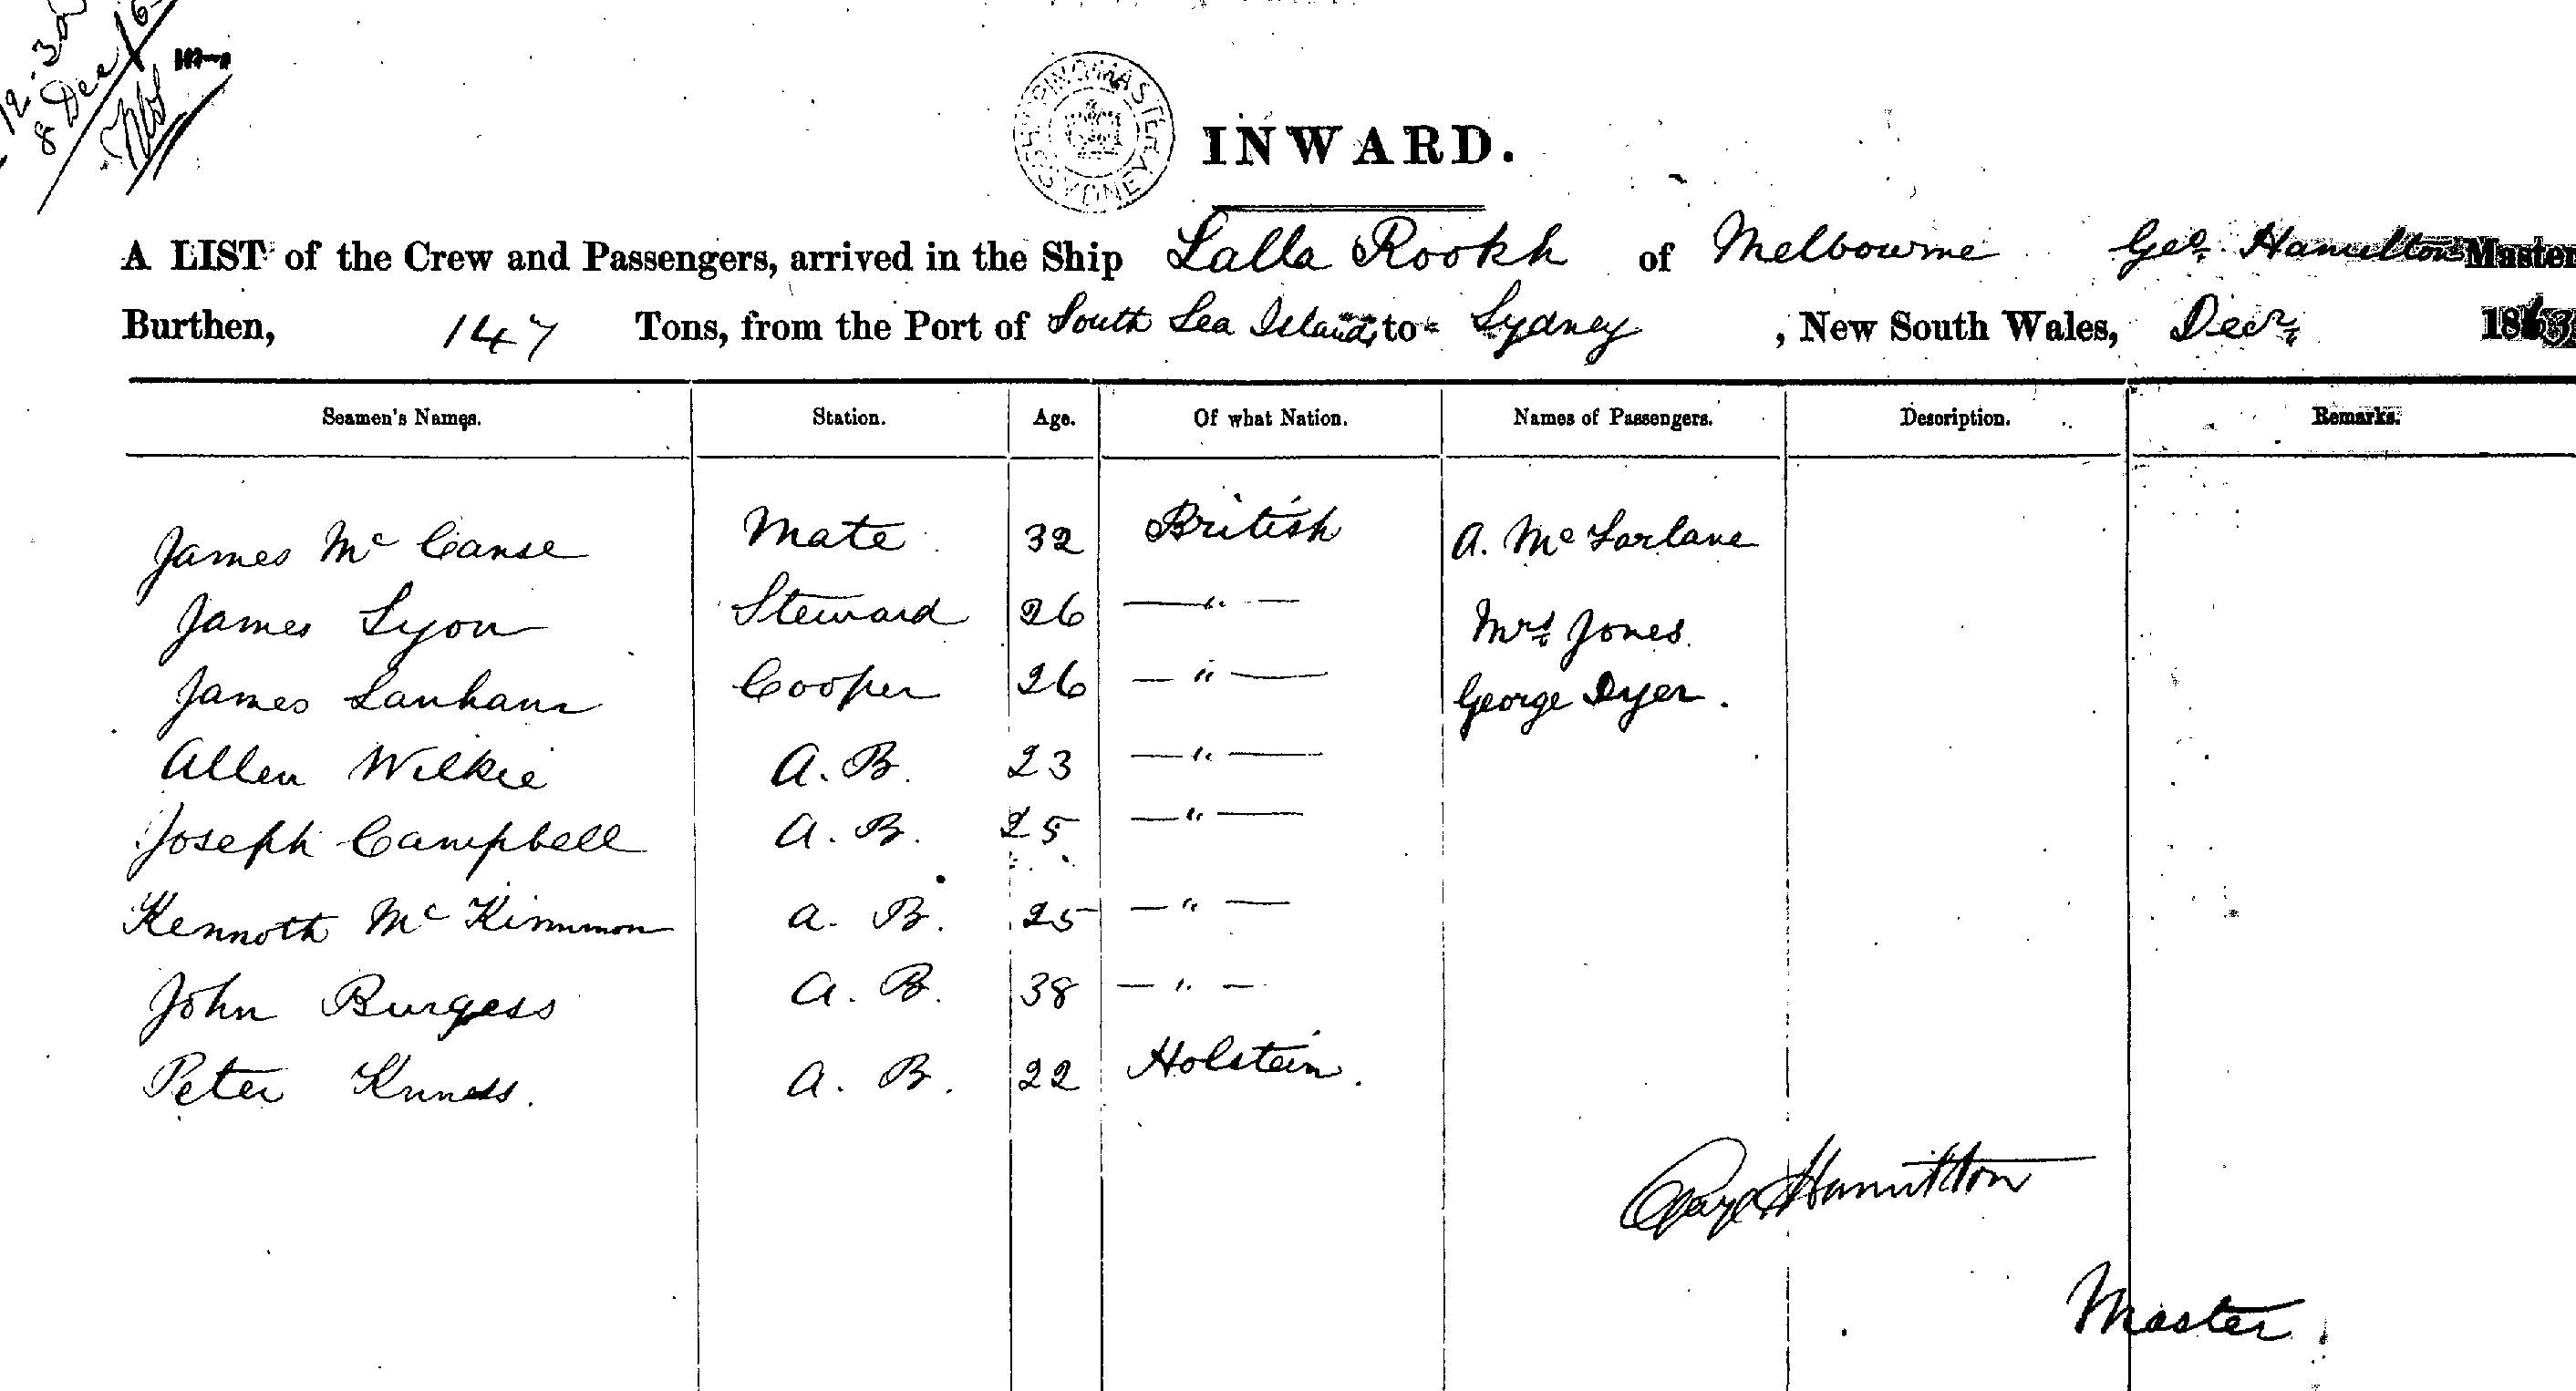 12.30
8 Dec/63
SHIPPING MASTER SYDNEY
INWARD.
A LIST of the Crew and Passengers, arrived in the Ship Lalla Rookh of Melbourne Geo. Hamilton Master
Burthen, 147 Tons, from the Port of South Sea Islands to Sydney, New South Wales, Decr. 1863
Seamen's Names. Station. Age. Of what Nation. Names of Passengers. Description. Remarks.
James Mc Canse Mate 32 British A. Mc Farlane
James Lyon Steward 26 —"— Mrs. Jones.
James Lanham Cooper 26 —"— George Dyer.
Allen Wilkie A.B. 23 —"—
Joseph Campbell A.B. 25 —"—
Kennoth Mc Kinnmon A.B. 25 —"—
John Burgess A.B. 38 —"—
Peter A.B. 22 Holstein.
George Hamilton
Master